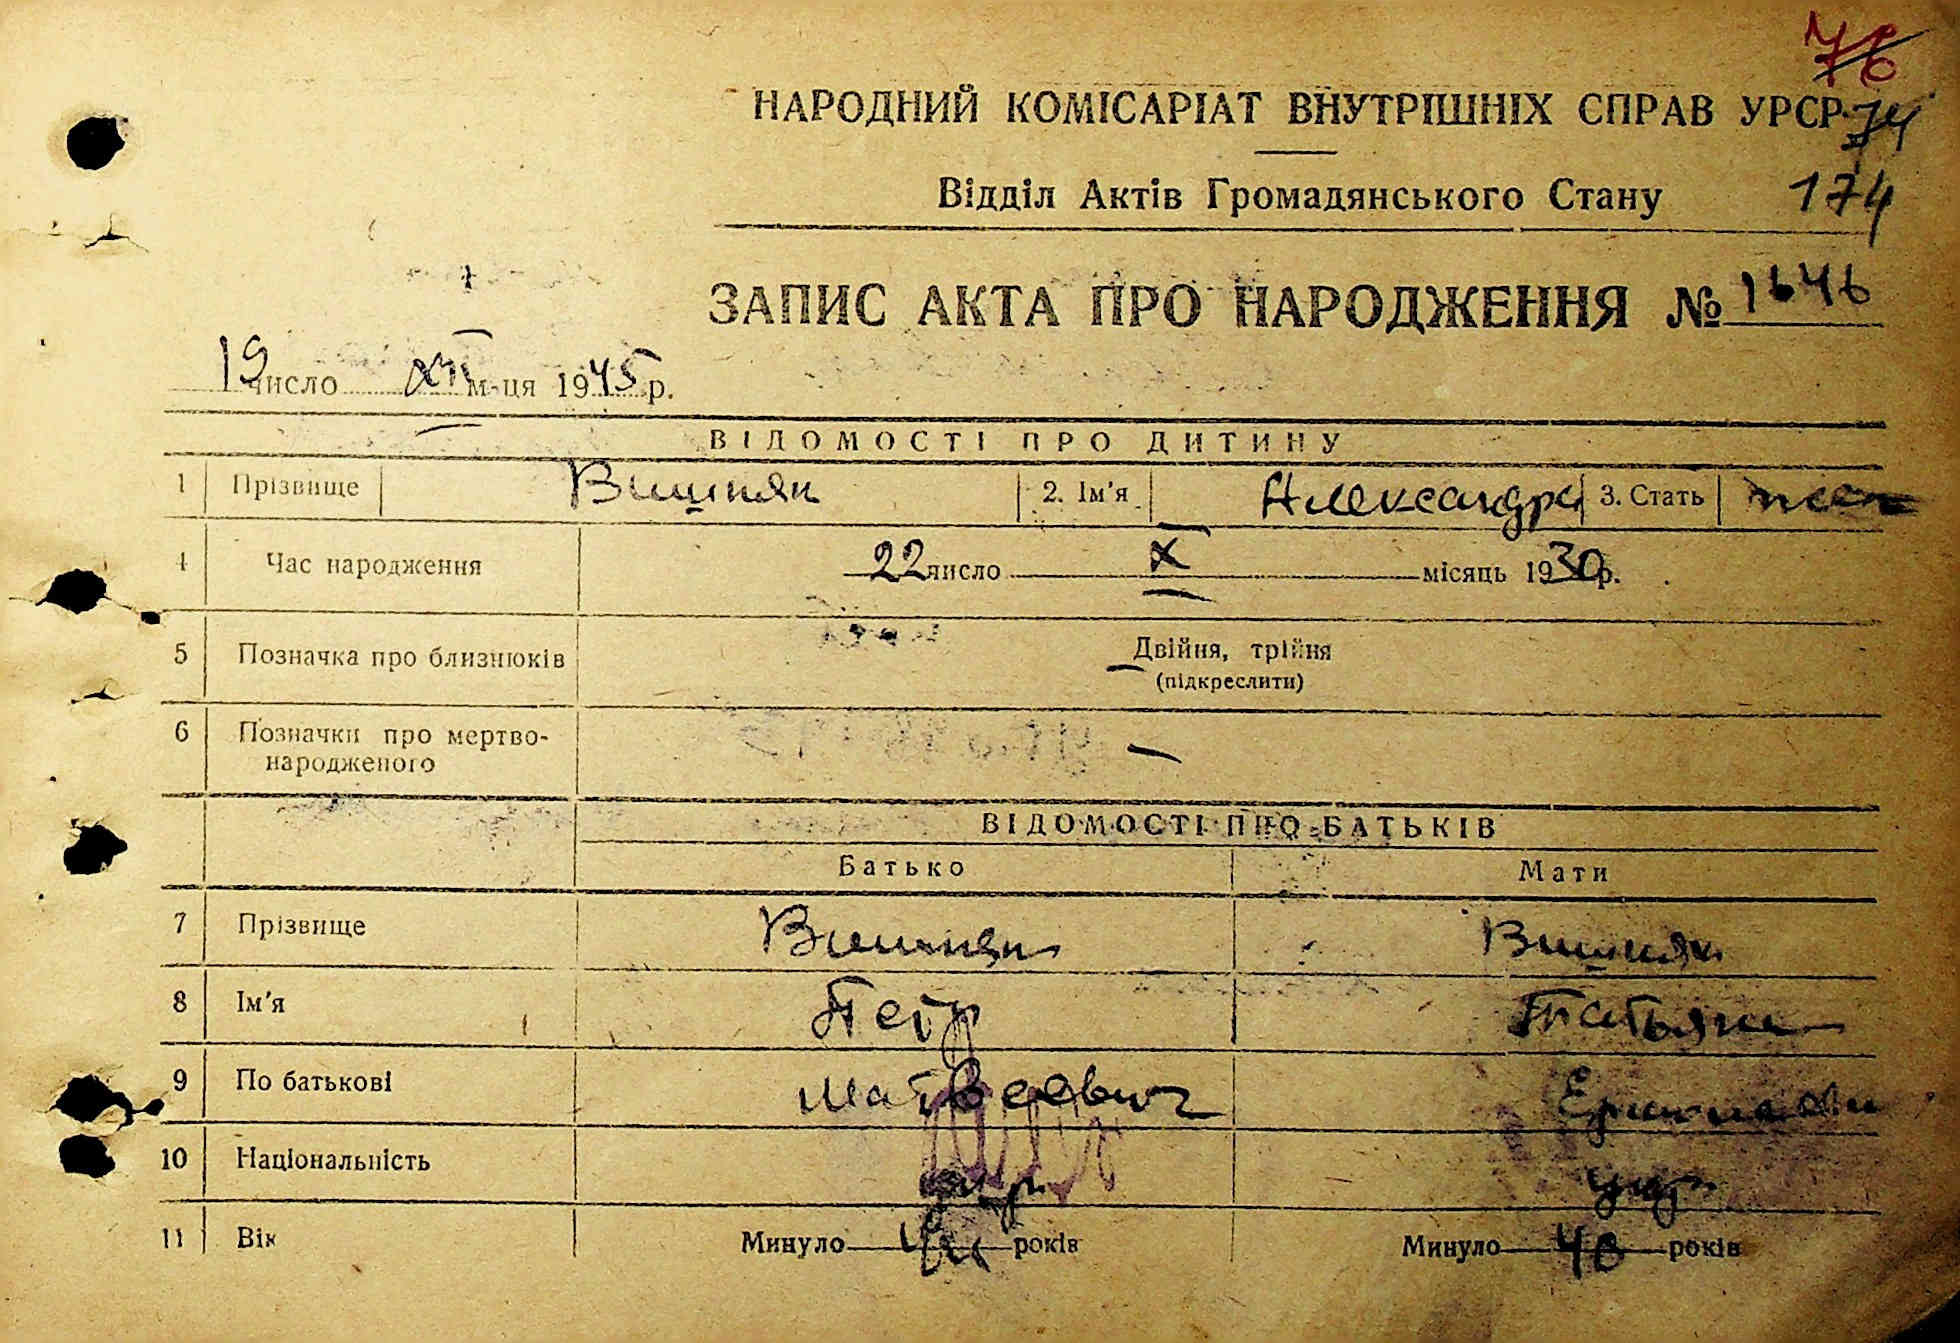 76
НАРОДНИЙ КОМІСАРІАТ ВНУТРІШНІХ СПРАВ УРСР
74
Відділ Актів Громадянського Стану 174
ЗАПИС АКТА ПРО НАРОДЖЕННЯ № 1646
19 число XII м-ця 1945 р.
ВІДОМОСТІ ПРО ДИТИНУ
1 Прізвище Вишняк 2. Ім'я Александра 3. Стать жен
4 Час народження 22 число X місяць 1930 р.
5 Позначка про близнюків Двійня, трійня
(підкреслити)
6 Позначки про мертво-
народженого —
ВІДОМОСТІ ПРО БАТЬКІВ
Батько Мати
7 Прізвище Вишняк Вишняк
8 Ім'я Петр Татьяна
9 По батькові Матвеевич
10 Національність укр укр
11 Вік Минуло років Минуло 48 років